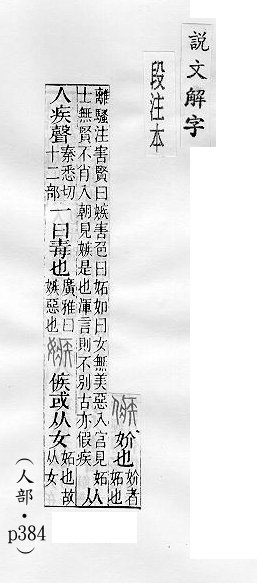 說文解字
段注本
㑵 妎也
妎者
妬也
離騷注害賢曰嫉害色曰妬如曰女無美惡入宮見妬
士無賢不肖入朝見嫉是也渾言則不別古亦假疾
从
人疾聲
秦悉切
十二部
一曰毒也
廣雅曰
嫉惡也
嫉 㑵或从女
妬也故
从女
（人部・p384）